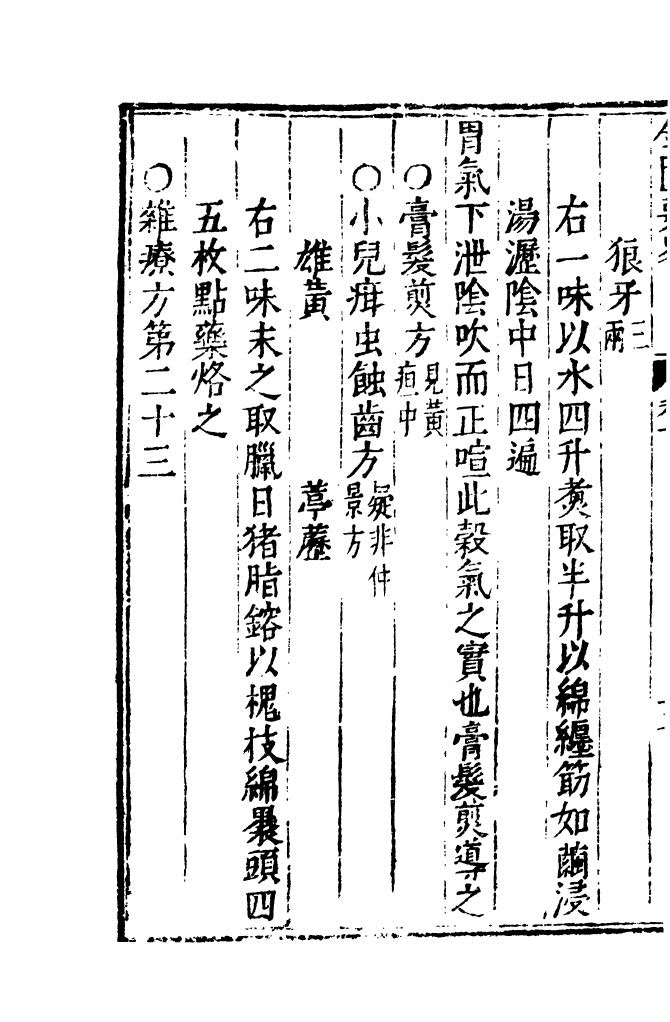 狼牙三兩
右一味以水四升煑取半升以綿纒筯如繭浸
湯瀝陰中日四遍
胃氣下泄陰吹而正喧此穀氣之實也膏髮煎導之
○膏髮煎方見黃疸中
○小兒疳虫蝕齒方疑非仲景方
雄黃 葶藶
右二味末之取臘日猪脂鎔以槐枝綿裹頭四
五枚點藥烙之
○雜療方第二十三